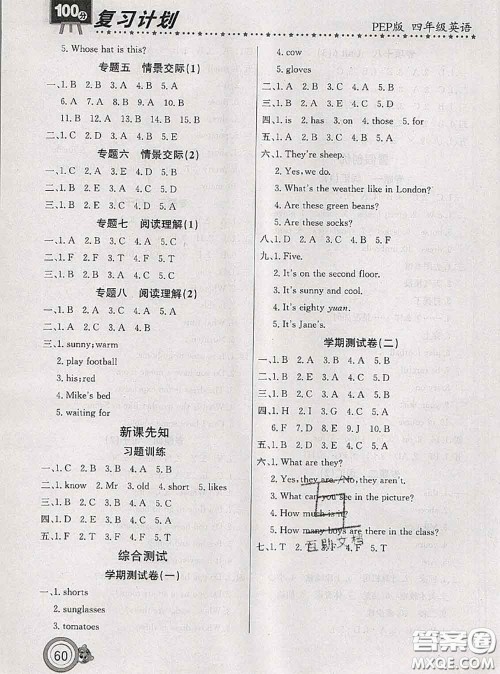 100分 复习计划
PEP版 四年级英语
5. Whose hat is this?
专题五 情景交际(1)
一、1. A 2. B 3. A 4. B 5. A
11. A 12. B 13. A 14. B 15. B
二、1. B 2. D 3. A 4. E 5. C
专题六 情景交际(2)
一、1. B 2. A 3. A 4. B 5. A
二、1. B 2. E 3. A 4. C 5. D
专题七 阅读理解(1)
一、1. A 2. A 3. B 4. C 5. B
二、1. D 2. E 3. A 4. C 5. B
专题八 阅读理解(2)
一、1. sunny; warm
2. play football
3. his; red
4. Mike's bed
5. waiting for
新课先知
习题训练
一、1. C 2. B 3. A 4. A 5. B
二、1. know 2. Mr 3. old 4. short 5. likes
三、1. B 2. B 3. A 4. B 5. A
四、1. D 2. C 3. B 4. E 5. A
五、1. F 2. T 3. T 4. F 5. T
综合测试
学期测试卷(一)
一、1. shorts
2. sunglasses
3. tomatoes
60
4. cow
5. gloves
二、1. C 2. A 3. C 4. C 5. A
三、1. B 2. A 3. E 4. C 5. D
四、1. is 2. has 3. on 4. those 5. for
五、1. A 2. B 3. B 4. C 5. A
六、1. They're sheep.
2. Yes, we do.
3. What's the weather like in London?
4. Are these green beans?
5. Are these socks?
八、1. D 2. A 3. C 4. B 5. F
九、1. Five.
2. It's on the second floor.
3. It's sunny and cool.
4. It's eighty yuan.
5. It's Jane's.
学期测试卷(二)
一、1. B 2. A 3. A 4. A 5. B
二、1. B 2. A 3. A 4. B 5. A
三、1. D 2. A 3. E 4. C 5. B
四、1. H 2. I 3. G 4. A 5. C
6. F 7. D 8. E 9. J 10. B
五、1. B 2. C 3. A 4. B 5. A
六、1. What are they?
2. Yes, they are./No, they aren't.
3. What can you see in the picture?
4. How much is it?
5. How many boys are there in the class?
七、1. T 2. T 4. F 5. T
答案圈
MXQE.COM